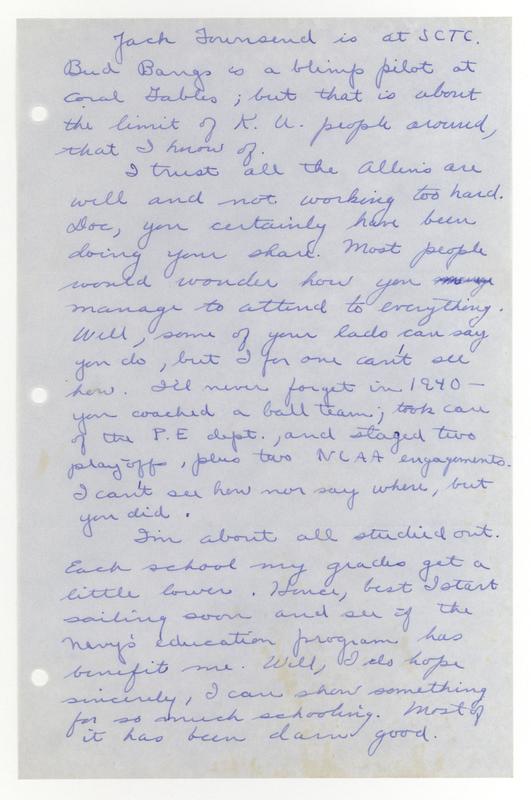 Jack Townsend is at SCTC.
Bud Bangs is a blimp pilot at
Coral Gables; but that is about
the limit of K. U. people around,
that I know of.
I trust all the Allens are
well and not working too hard.
Doc, you certainly have been
doing your share. Most people
would wonder how you
manage to attend to everything.
Well, some of your lads can say
you do, but I for one can't see
how. I'll never forget in 1940 —
you coached a ball team; took care
of the P.E dept., and staged two
play-offs, plus two NCAA engagements.
I can't see how nor say where, but
you did.
I'm about all studied out.
Each school my grades get a
little lower. Hence, best I start
sailing soon and see if the
Navy's education program has
benefit me. Well, I do hope
sincerely, I can show something
for so much schooling. Most of
it has been darn good.